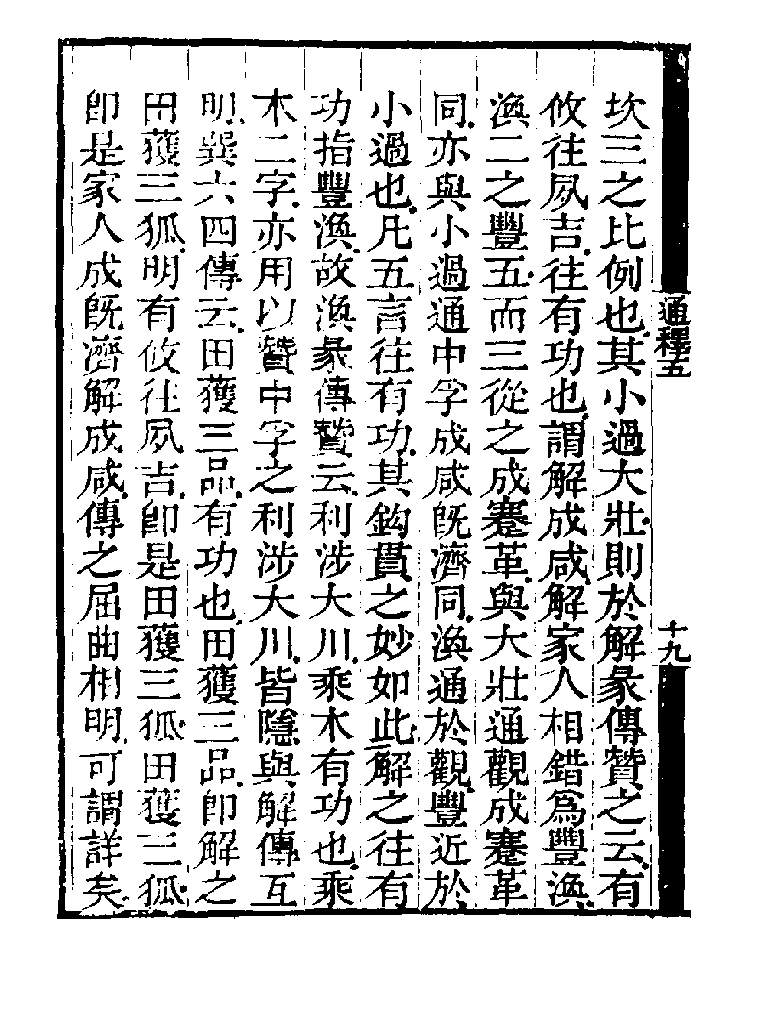 坎三之比例也其小過大壯則於解彖傳贊之云有
攸往夙吉往有功也謂解成咸解家人相錯爲豐渙
渙二之豐五而三從之成蹇革與大壯通觀成蹇革
同亦與小過通中孚成咸旣濟同渙通於觀豐近於
小過也凡五言往有功其鈎貫之妙如此解之往有
功指豐渙故渙彖傳贊云利涉大川乘木有功也乘
木二字亦用以贊中孚之利涉大川皆隱與解傳互
明巽六四傳云田獲三品有功也田獲三品卽解之
田獲三狐明有攸往夙吉卽是田獲三狐田獲三狐
卽是家人成旣濟解成咸傳之屈曲相明可謂詳矣
通釋五
十九